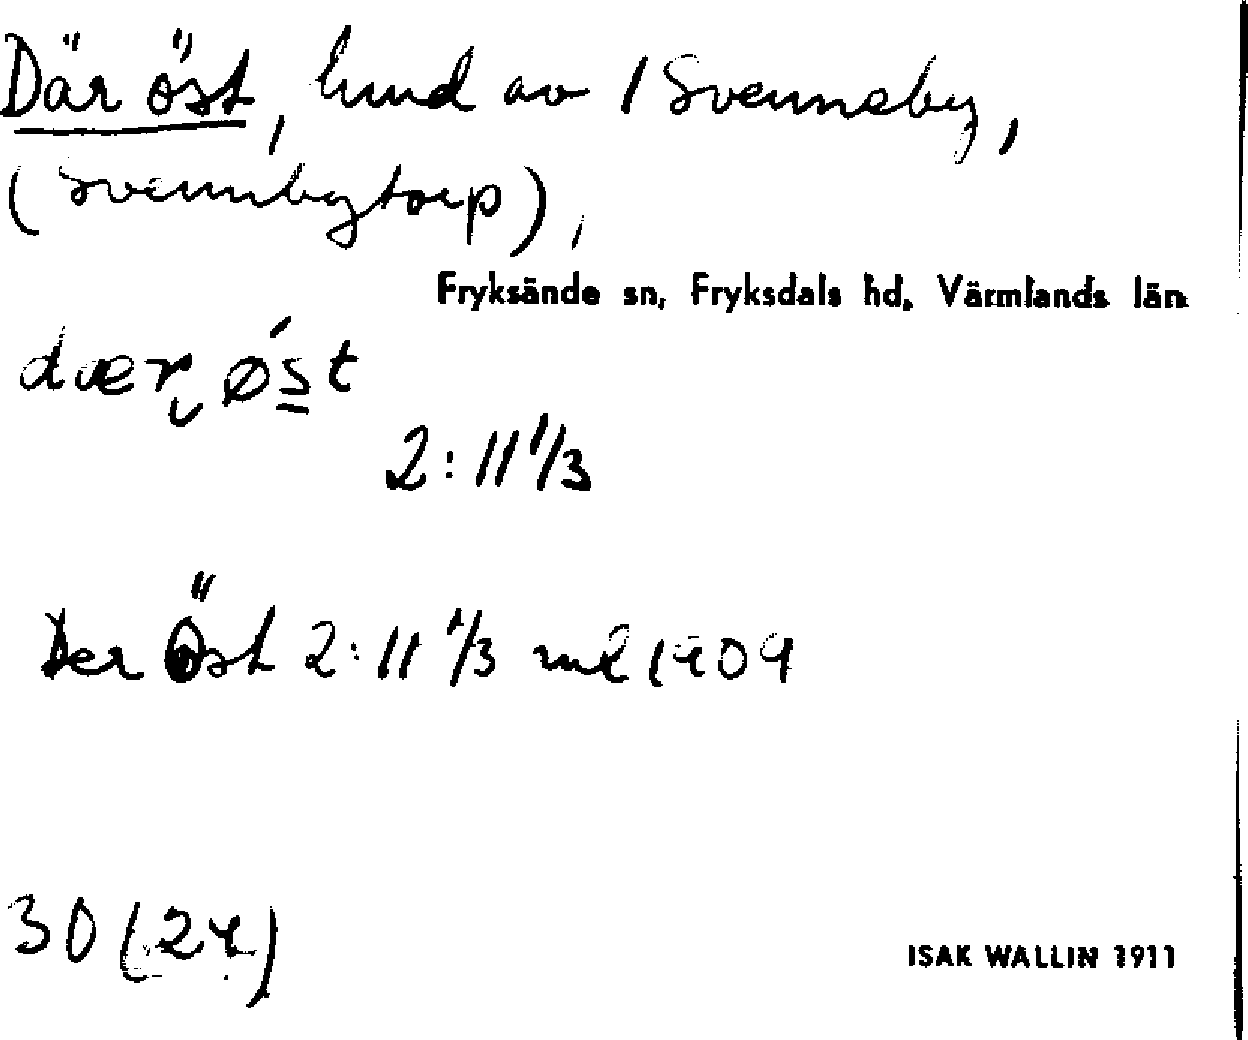 Där öst, hmd av 1 Svenneby,
(Svennbytorp),
Fryksände sn, Fryksdals hd, Värmlands län
dær øst
2:11 1/3
Der Öst 2:11 1/3 ml 1909
30 (24)
ISAK WALLIN 1911